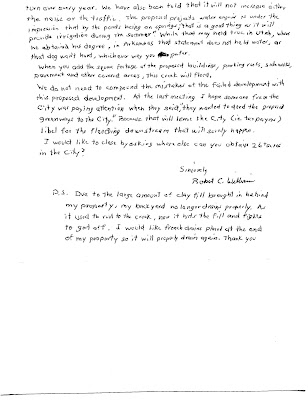 turn over every year. We have also been told that it will not increase either
the noise or the traffic. The proposed projects water engineer is under the
impression that by the ponds being on sponges, "that is a good thing as it will
provide irrigation during the summer". While that may hold true in Utah, where
he obtained his degree, in Arkansas that statement does not hold water, or
that dog won't hunt, whichever way you prefer.
When you add the square footage of the proposed buildings, parking lots, sidewalks,
pavement and other covered areas, this creek will flood.
We do not need to compound the mistakes of the failed development with
this proposed development. At the last meeting I hope someone from the
City was paying attention when they said, "they wanted to deed the proposed
greenways to the City." Because that will leave the City (i.e. taxpayers)
libel for the flooding downstream that will surely happen.
I would like to close by asking where else can you obtain 26 acres
in the City?
Sincerely
Robert C. Williams
P.S. Due to the large amount of clay fill brought in behind
my property, my backyard no longer drains properly. As
it used to run to the creek, now it hits the fill and fights
to get off. I would like french drains placed at the end
of my property so it will properly drain again. Thank you